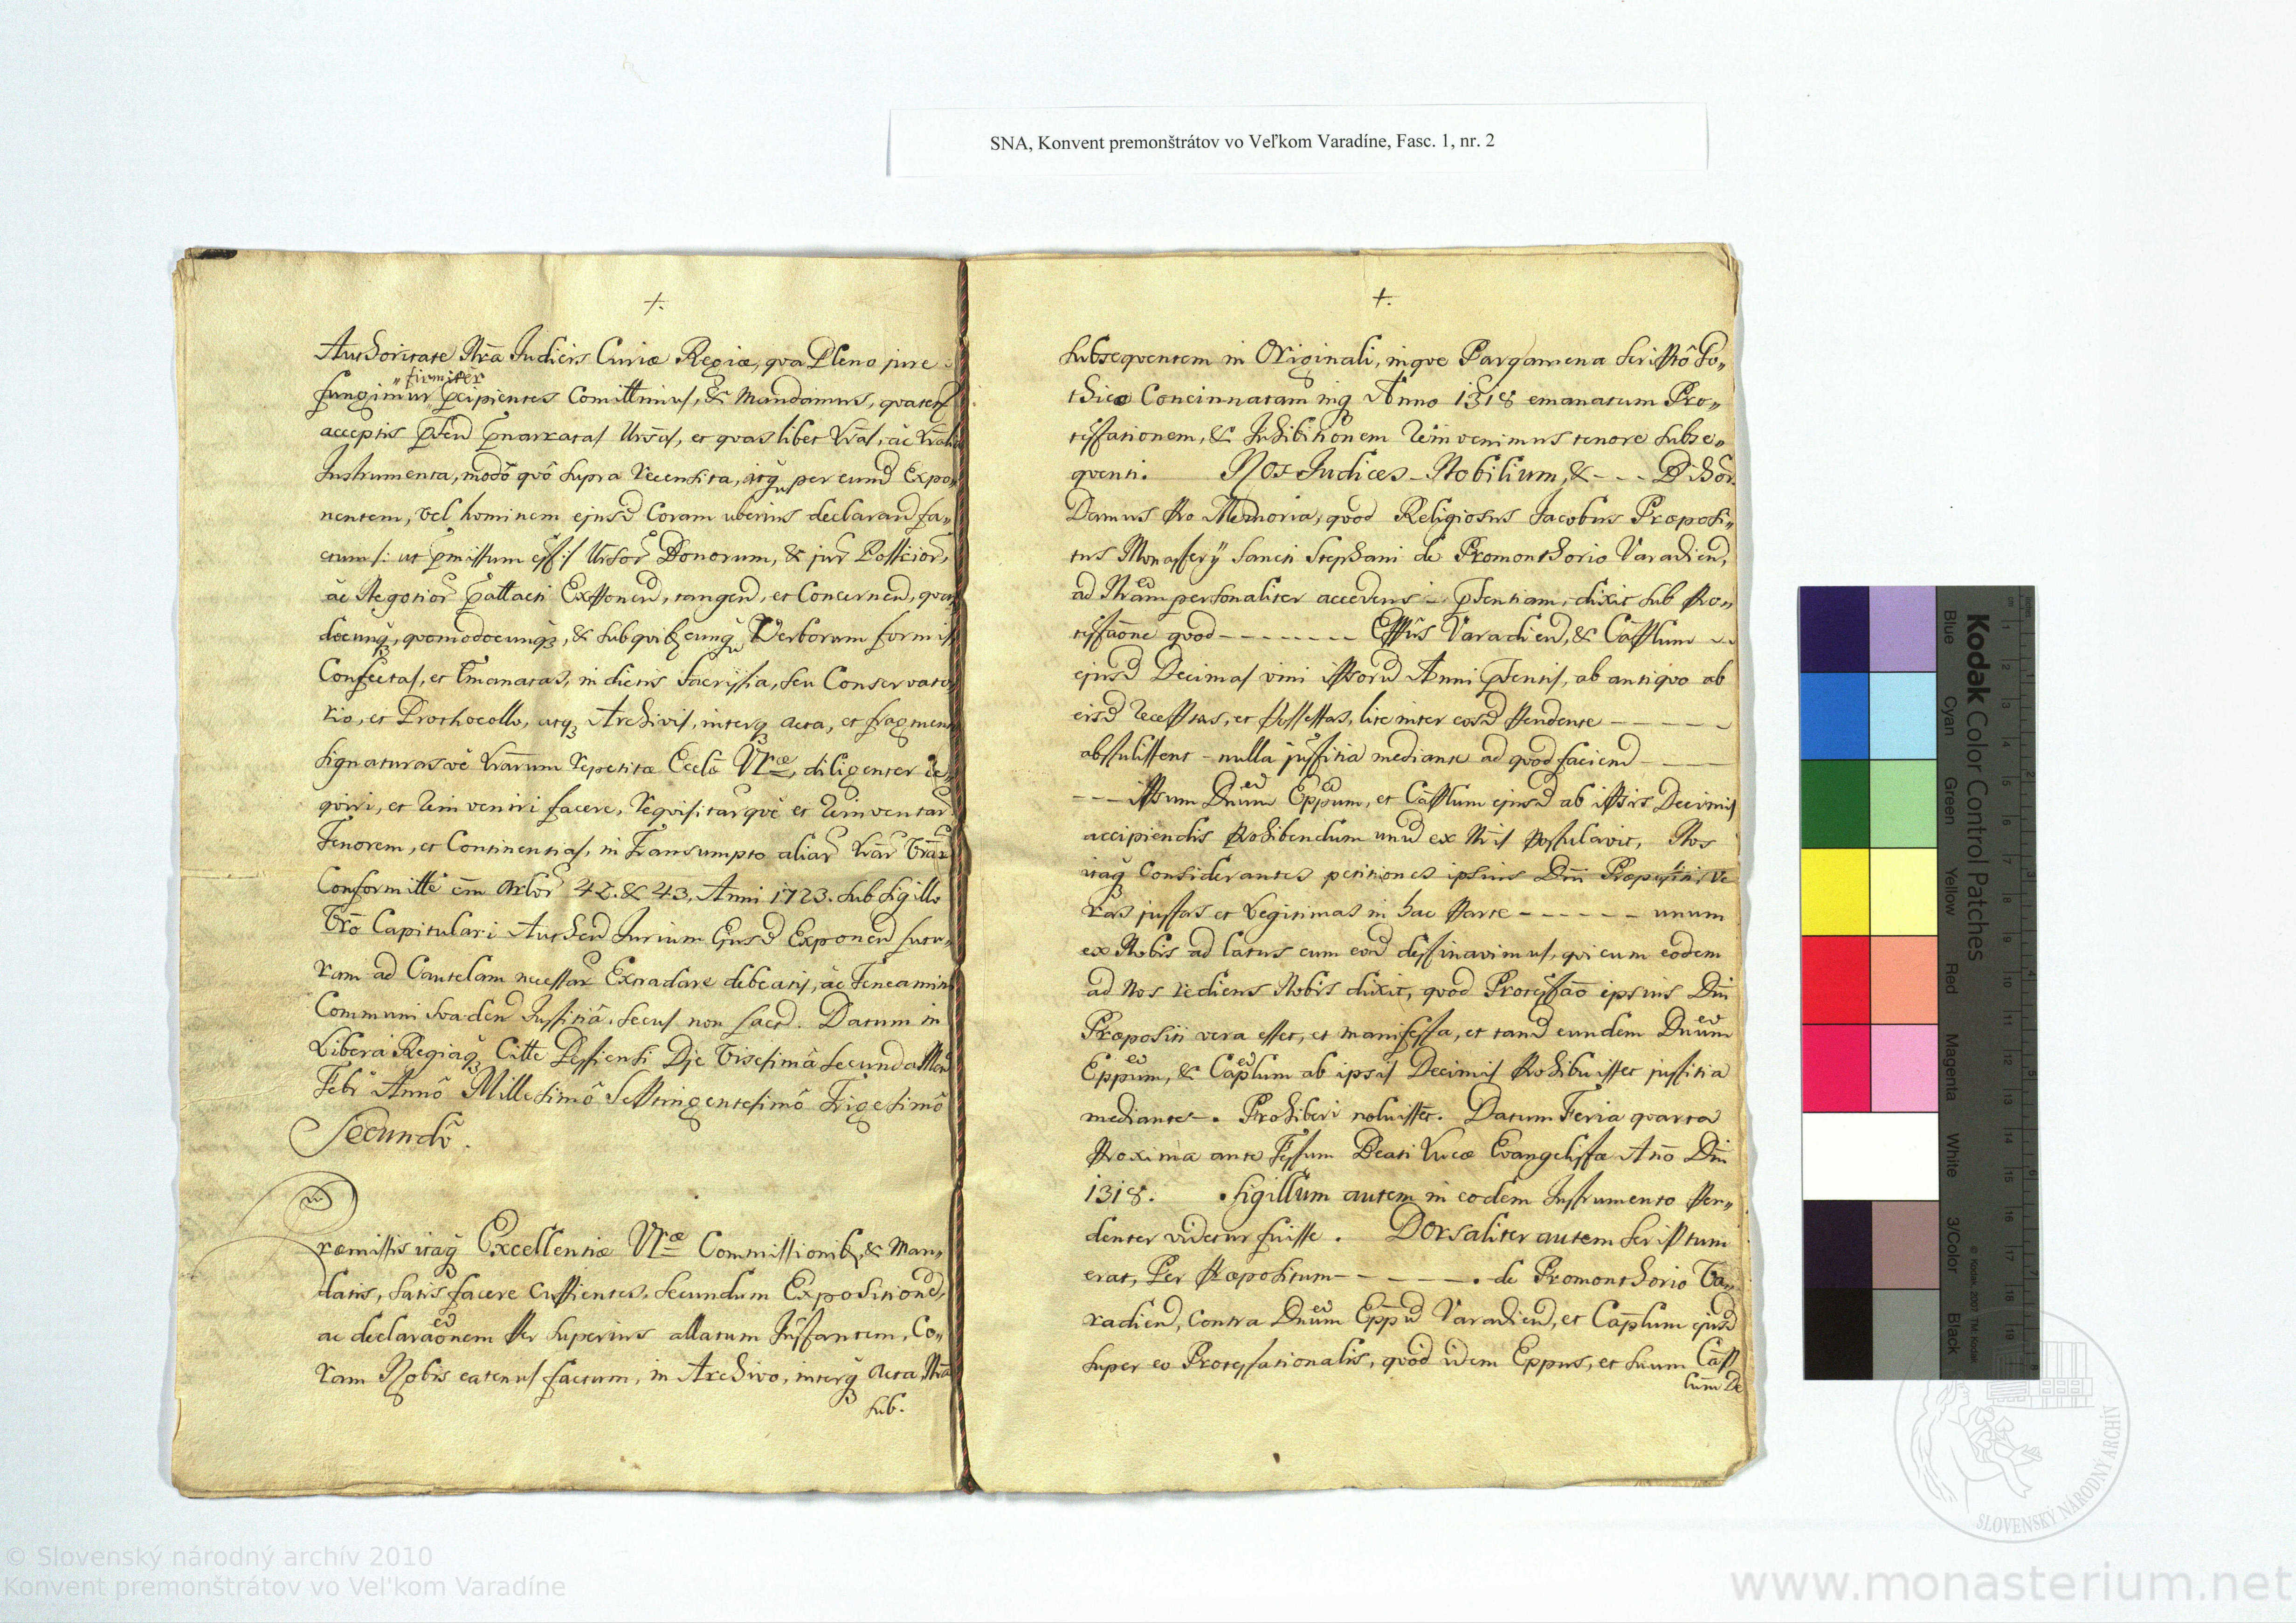 SNA, Konvent premonštrátov vo Veľkom Varadíne, Fasc. 1, nr. 2
+.
Authoritate Nr̃a Judicis Curiæ Regiæ, qva Pleno jure
„firmiter
fungimur p̃cipientes Comittimus, & Mandamus, qvaten9
acceptis p̃sen p̃narratas
Instrumenta, modô qvô supra recensita, itq3 per eund Expo„
nentem, vel hominem ejusd Coram uberius declarand fa„
ctum /: ut p̃missum est :/ Donorum, & jur Possessior,
ac Negotior p̃attacti Exponend, tangend, et Concernend, qvan
docunq3, qvomodocunq3, & sub qvib3cunq3 Verborum formis
Confectas, et Emanatas, in dictis Sacristia, seu Conservato
rio, et Prothocollo, atq3 Archivis, interq3 acta, et fragmen
signaturasve repetitæ Ecclæ Vr̃æ, diligenter re„
qviri, et reinveniri facere, reqvisitarqve et reinventar
Tenorem, et Continentias, in Transumpto aliar
Conformitte Arlor 42. & 43. Anni 1723. sub sigillo
Vr̃o Capitulari Authen Jurium Ejusd Exponen futu„
ram ad Cautelam necessar Extradare debeatis, ac Teneamini
Communi svaden Justitiâ. secus non fact. Datum in
Libera Regiaq3 Citte Pestiensi Die Visesimâ Secunda Men
Febr Annô Millesimô Septingentesimô Trigesimô
Secundô.
Præmissis itaq3 Excellentiæ Vr̃æ Commissionib3, & Man„
datis, satisfacere cupientes, secundum Expositioned,
ac declaraõnem per superius allatum Instantem, Co„
ram Nobis eatenus factum, in Archivo, interq3 Acta Nr̃a
sub.
+.
subseqventem in Originali, inqve Pargamena scriptô Go„
thico Concinnatam inq3 Anno 1318 emanatam Pro„
testationem, & Inhibitionem reinvenimus tenore subse„
qventi. Nos Judices Nobilium, & - - - Bihor
Damus pro Memoria, qvod Religiosus Jacobus Præposi„
tus Monasterÿ Sancti Stephani de Promonthorio Varadien,
ad Nr̃am personaliter accedens - p̃sentiam, dixit sub pro„
testaõne qvod - - - - - - - - Eppus Varadien, & Capplum
ejusd Decimas vini istorũ Anni p̃sentis, ab antiqvo ab
eisd receptas, et possessas, lite inter eosd pendente - - - - -
abstulissent - nulla justitia mediante ad qvod faciend - - -
- - - ipsum Dnum Eppum, et Capplum ejusd ab ipsis Decimis
accipiendis prohibendum unũ ex Nr̃is postulavit, Nos
itaq3 Considerantes petitiones ipsius Dni Præpositi, ve
ras justas et Legitimas in hac parte - - - - - - unum
ex Nobis ad latus cum eod destinavimus, qvi cum eodem
ad Nos rediens Nobis dixit, qvod Protestaõ ipsius Dni
Præpositi vera esset, et manifesta, et tand eundem Dnum
Eppum, & Caplum ab ipsis Decimis prohibuisset justitia
mediante. Prohiberi noluisset. Datum Feria qvarta
proxima ante Festum Beati Lucæ Evangelistæ Anõ Dni
1318. Sigillum autem in eodem Instrumento pen„
denter videtur fuisse. Dorsaliter autem scriptum
erat, Per Præpositum - - - - - - de Promonthorio Va„
radien, contra Dnum Eppũ Varadien, et Caplum ejusd
super eo Protestationalis, qvod idem Eppus, et suum Capp
lum De
Kodak Color Control Patches
Blue
Cyan
Green
Yellow
Red
Magenta
White
3/Color
Black
© Kodak, 2007 TM: Kodak
SLOVENSKÝ NÁRODNÝ ARCHÍV
© Slovenský národný archív 2010
Konvent premonštrátov vo Veľkom Varadíne
www.monasterium.net